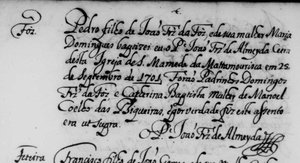 Foz.
Pedro filho de Joaõ Frz da Foz, e de sua mulher Maria
Domingues baptizei eu o Pe Joaõ Frz de Almeyda Cura
desta Igreja de S. Mamede da Matamourisca em 28
de Septembro de 1701. Foraõ Padrinhos Domingos
Frz da Foz e Catherina Baptista mulher de Manoel
Coelho das Figueiras, e por verdade fiz este assento
era ut supra.
Pe Joaõ Frz de Almeyda
Francisco filho de Joaõ